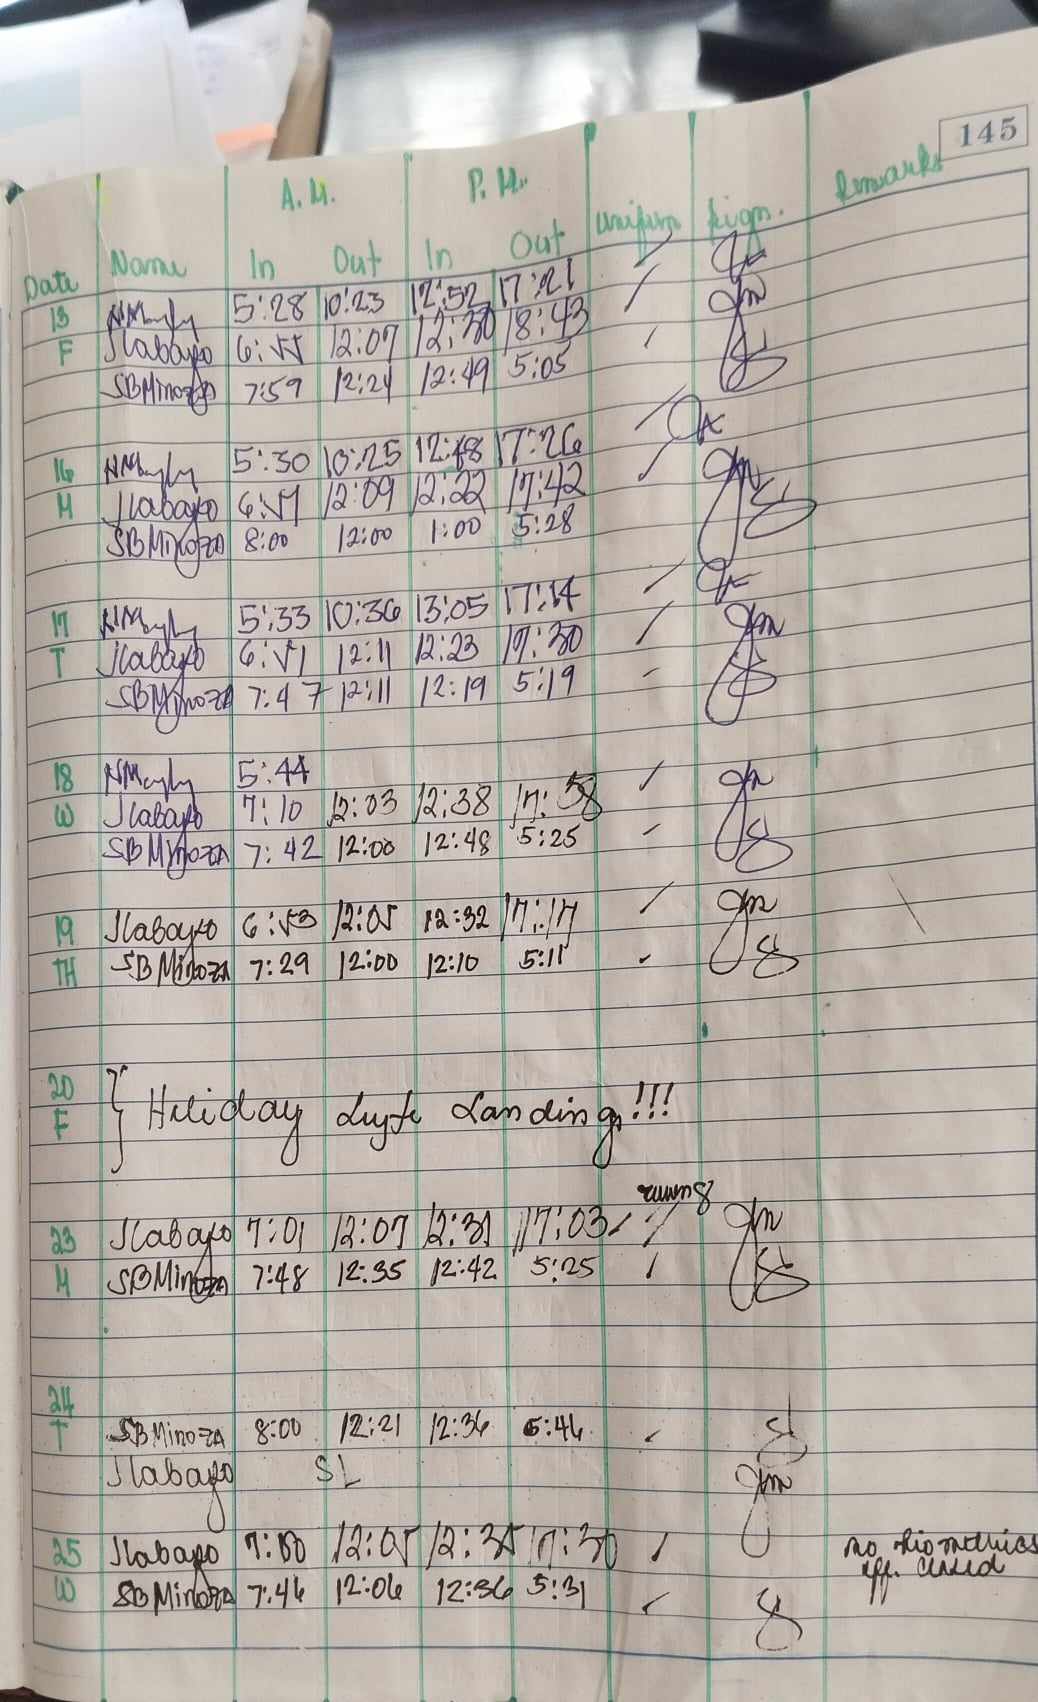 145
A.M. P.M.
Date Name In Out In Out Uniform Sign. Remarks
13 5:28 10:23 12:52 17:21
F Jlabayo 6:55 12:07 12:30 18:43
SBMinoza 7:59 12:24 12:49 5:05
16 5:30 10:25 12:48 17:26
M Jlabayo 6:51 12:09 12:22 17:42
SBMinoza 8:00 12:00 1:00 5:28
17 5:33 10:36 13:05 17:14
T Jlabayo 6:51 12:11 12:23 17:30
SBMinoza 7:47 12:11 12:19 5:19
18 5:44
W Jlabayo 7:10 12:03 12:38 17:58
SBMinoza 7:42 12:00 12:48 5:25
19 Jlabayo 6:53 12:05 12:32 17:17
TH SBMinoza 7:29 12:00 12:10 5:11
20
F Holiday Leyte Landing!!!
23 Jlabayo 7:01 12:07 12:31 17:03
M SBMinoza 7:48 12:35 12:42 5:25
24
T SBMinoza 8:00 12:21 12:36 5:46
Jlabayo SL
25 Jlabayo 7:00 12:05 12:35 17:30 no biometrics
off. closed
W SBMinoza 7:46 12:06 12:36 5:31